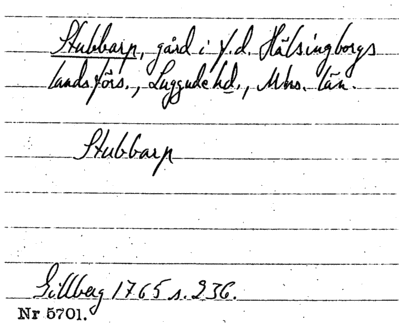 Stubbarp, gård i f.d. Hälsingborgs
landsförs., Luggude hd., Mhs. län.
Stubbarp
Gillberg 1765 s. 236.
Nr 5701.